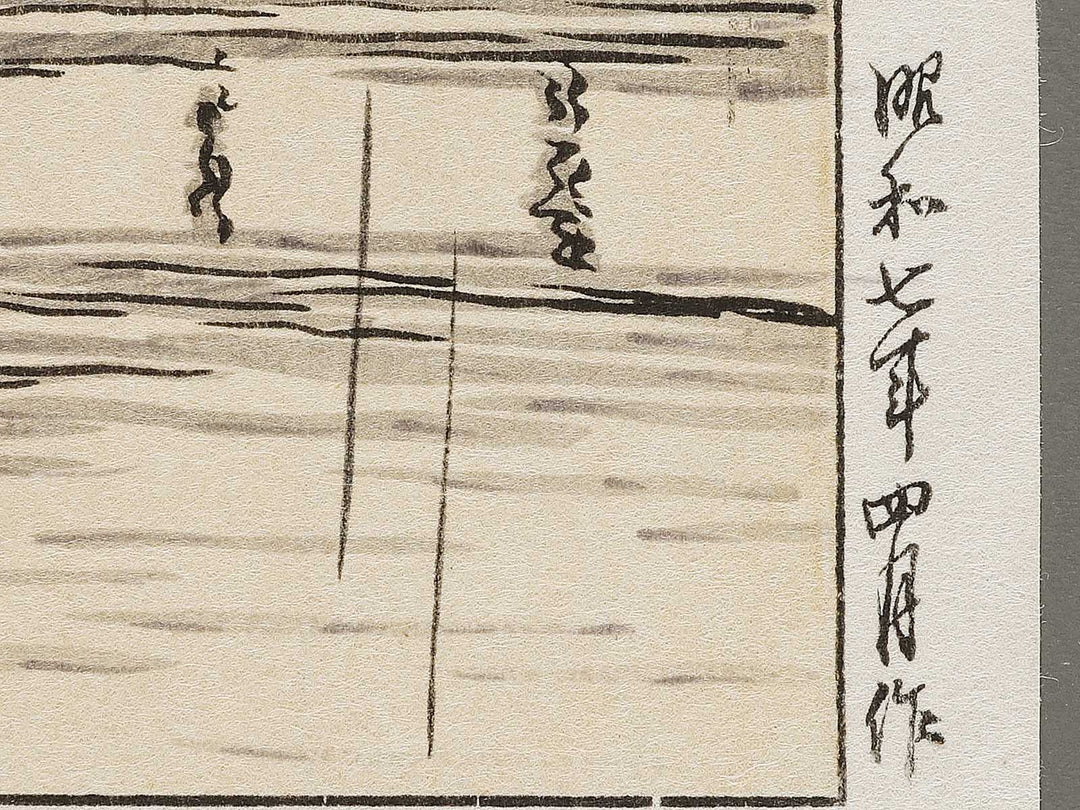 昭和七年四月作